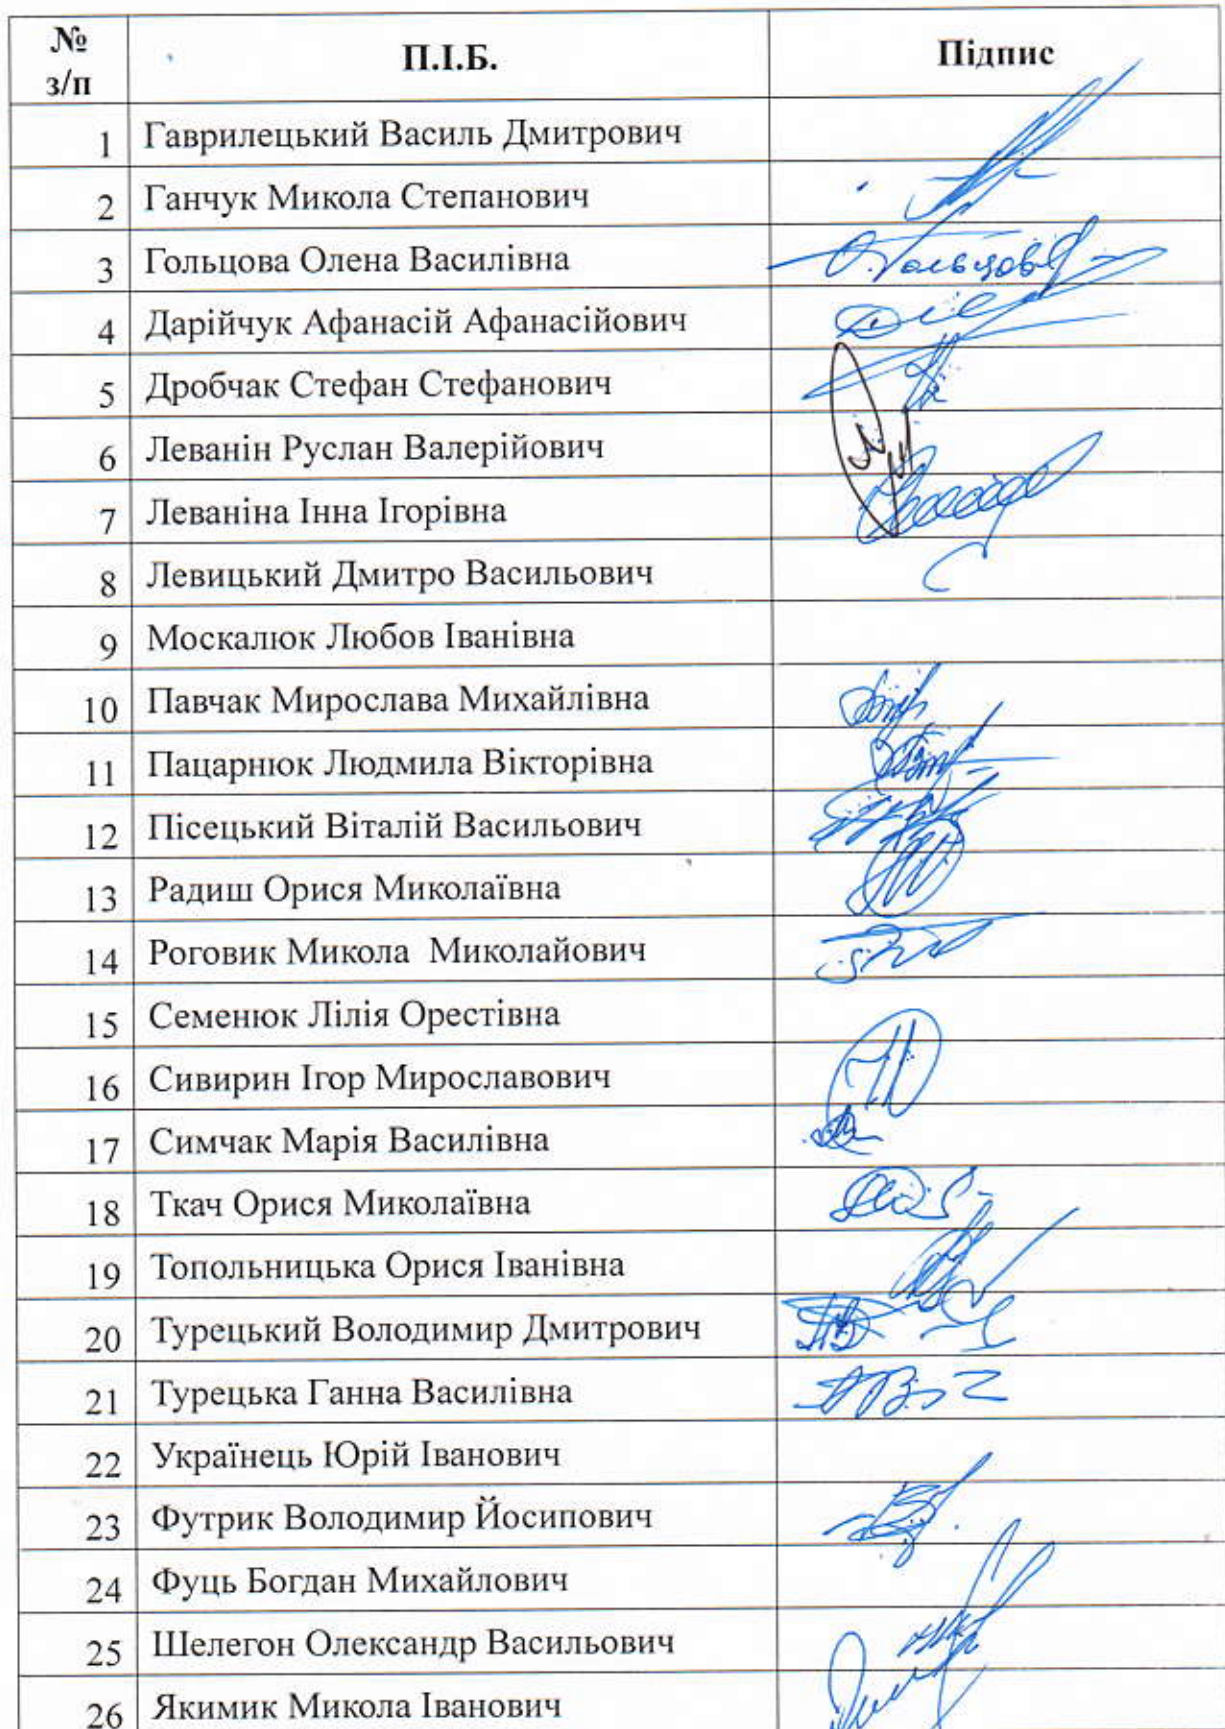 № з/п П.І.Б. Підпис
1 Гаврилецький Василь Дмитрович
2 Ганчук Микола Степанович
3 Гольцова Олена Василівна О.Гольцова
4 Дарійчук Афанасій Афанасійович
5 Дробчак Стефан Стефанович
6 Леванін Руслан Валерійович
7 Леваніна Інна Ігорівна
8 Левицький Дмитро Васильович
9 Москалюк Любов Іванівна
10 Павчак Мирослава Михайлівна
11 Пацарнюк Людмила Вікторівна
12 Пісецький Віталій Васильович
13 Радиш Орися Миколаївна
14 Роговик Микола Миколайович
15 Семенюк Лілія Орестівна
16 Сивирин Ігор Мирославович
17 Симчак Марія Василівна
18 Ткач Орися Миколаївна
19 Топольницька Орися Іванівна
20 Турецький Володимир Дмитрович
21 Турецька Ганна Василівна
22 Українець Юрій Іванович
23 Футрик Володимир Йосипович
24 Фуць Богдан Михайлович
25 Шелегон Олександр Васильович
26 Якимик Микола Іванович